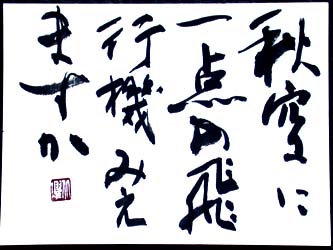 秋空に
一点の飛
行機みえ
ますか